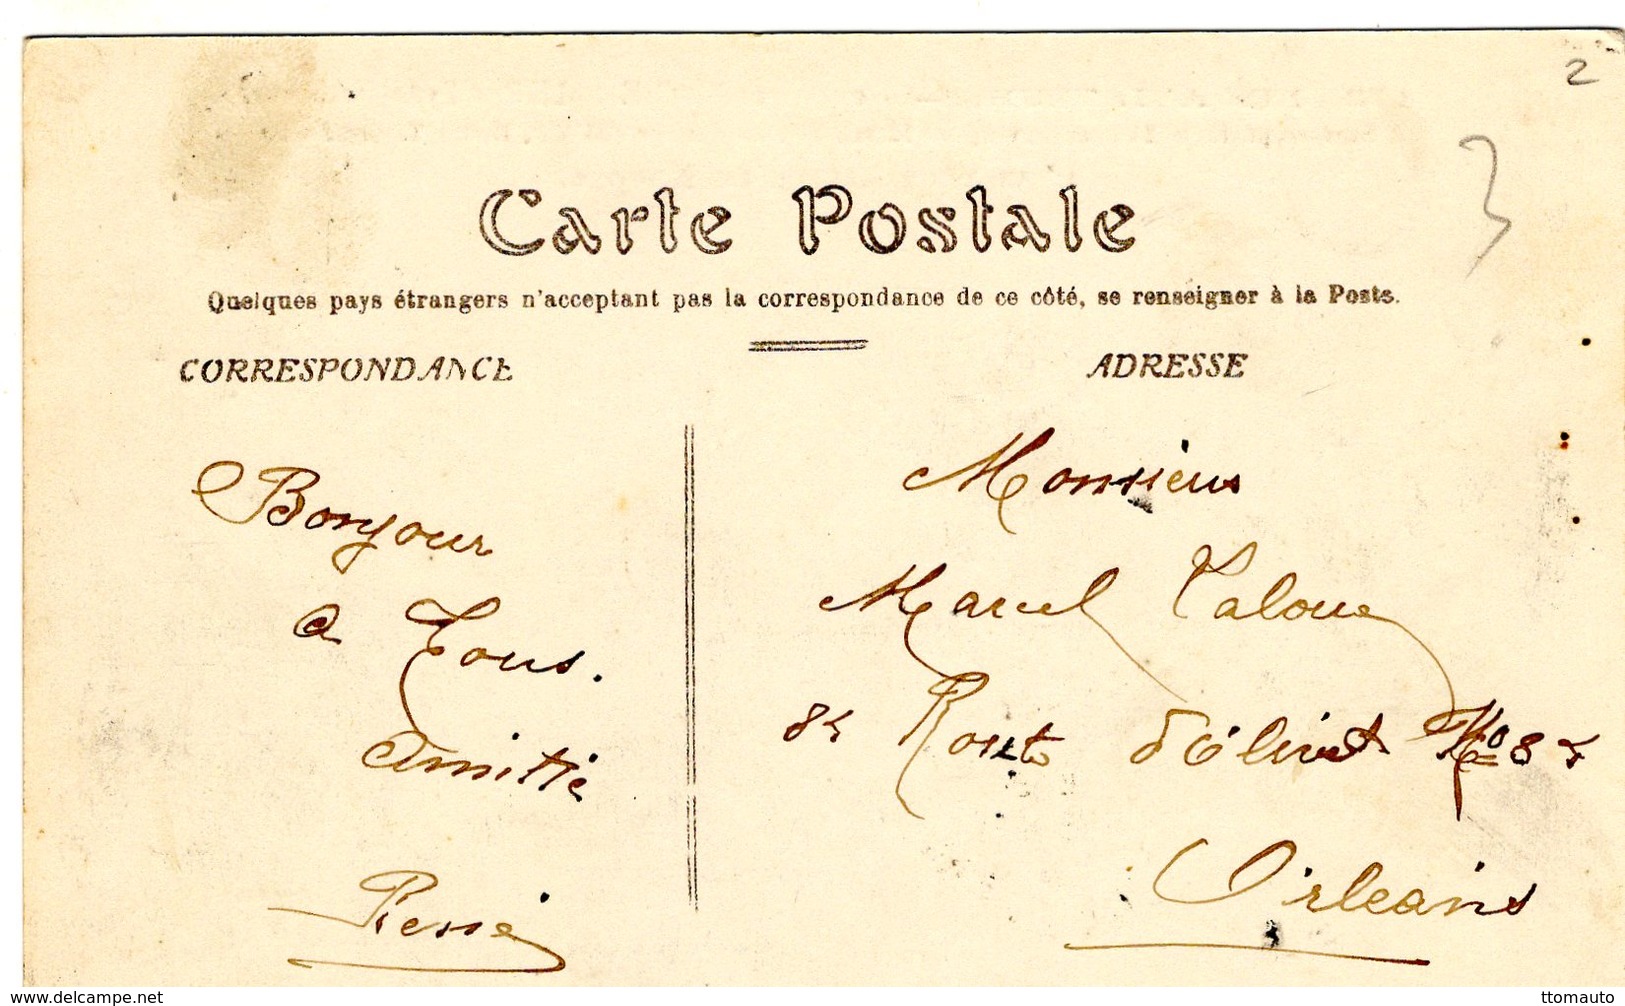 2
Carte Postale
Quelques pays étrangers n'acceptant pas la correspondance de ce côté, se renseigner à la Poste.
CORRESPONDANCE
ADRESSE
Bonjour
a Tous.
Amitié
René
Monsieur
Marcel
Route d'Olivet No 8
Orleans
www.delcampe.net
ttomauto